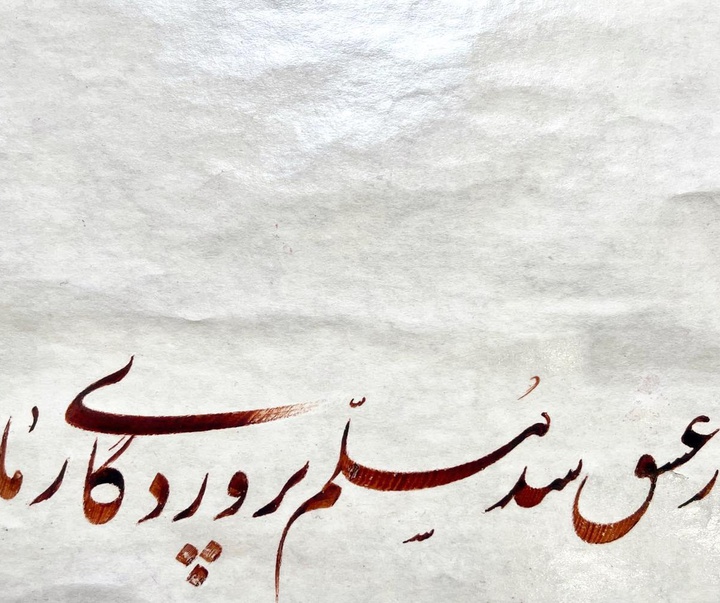 ر عشق شد مُسلّم پروردگاری ما